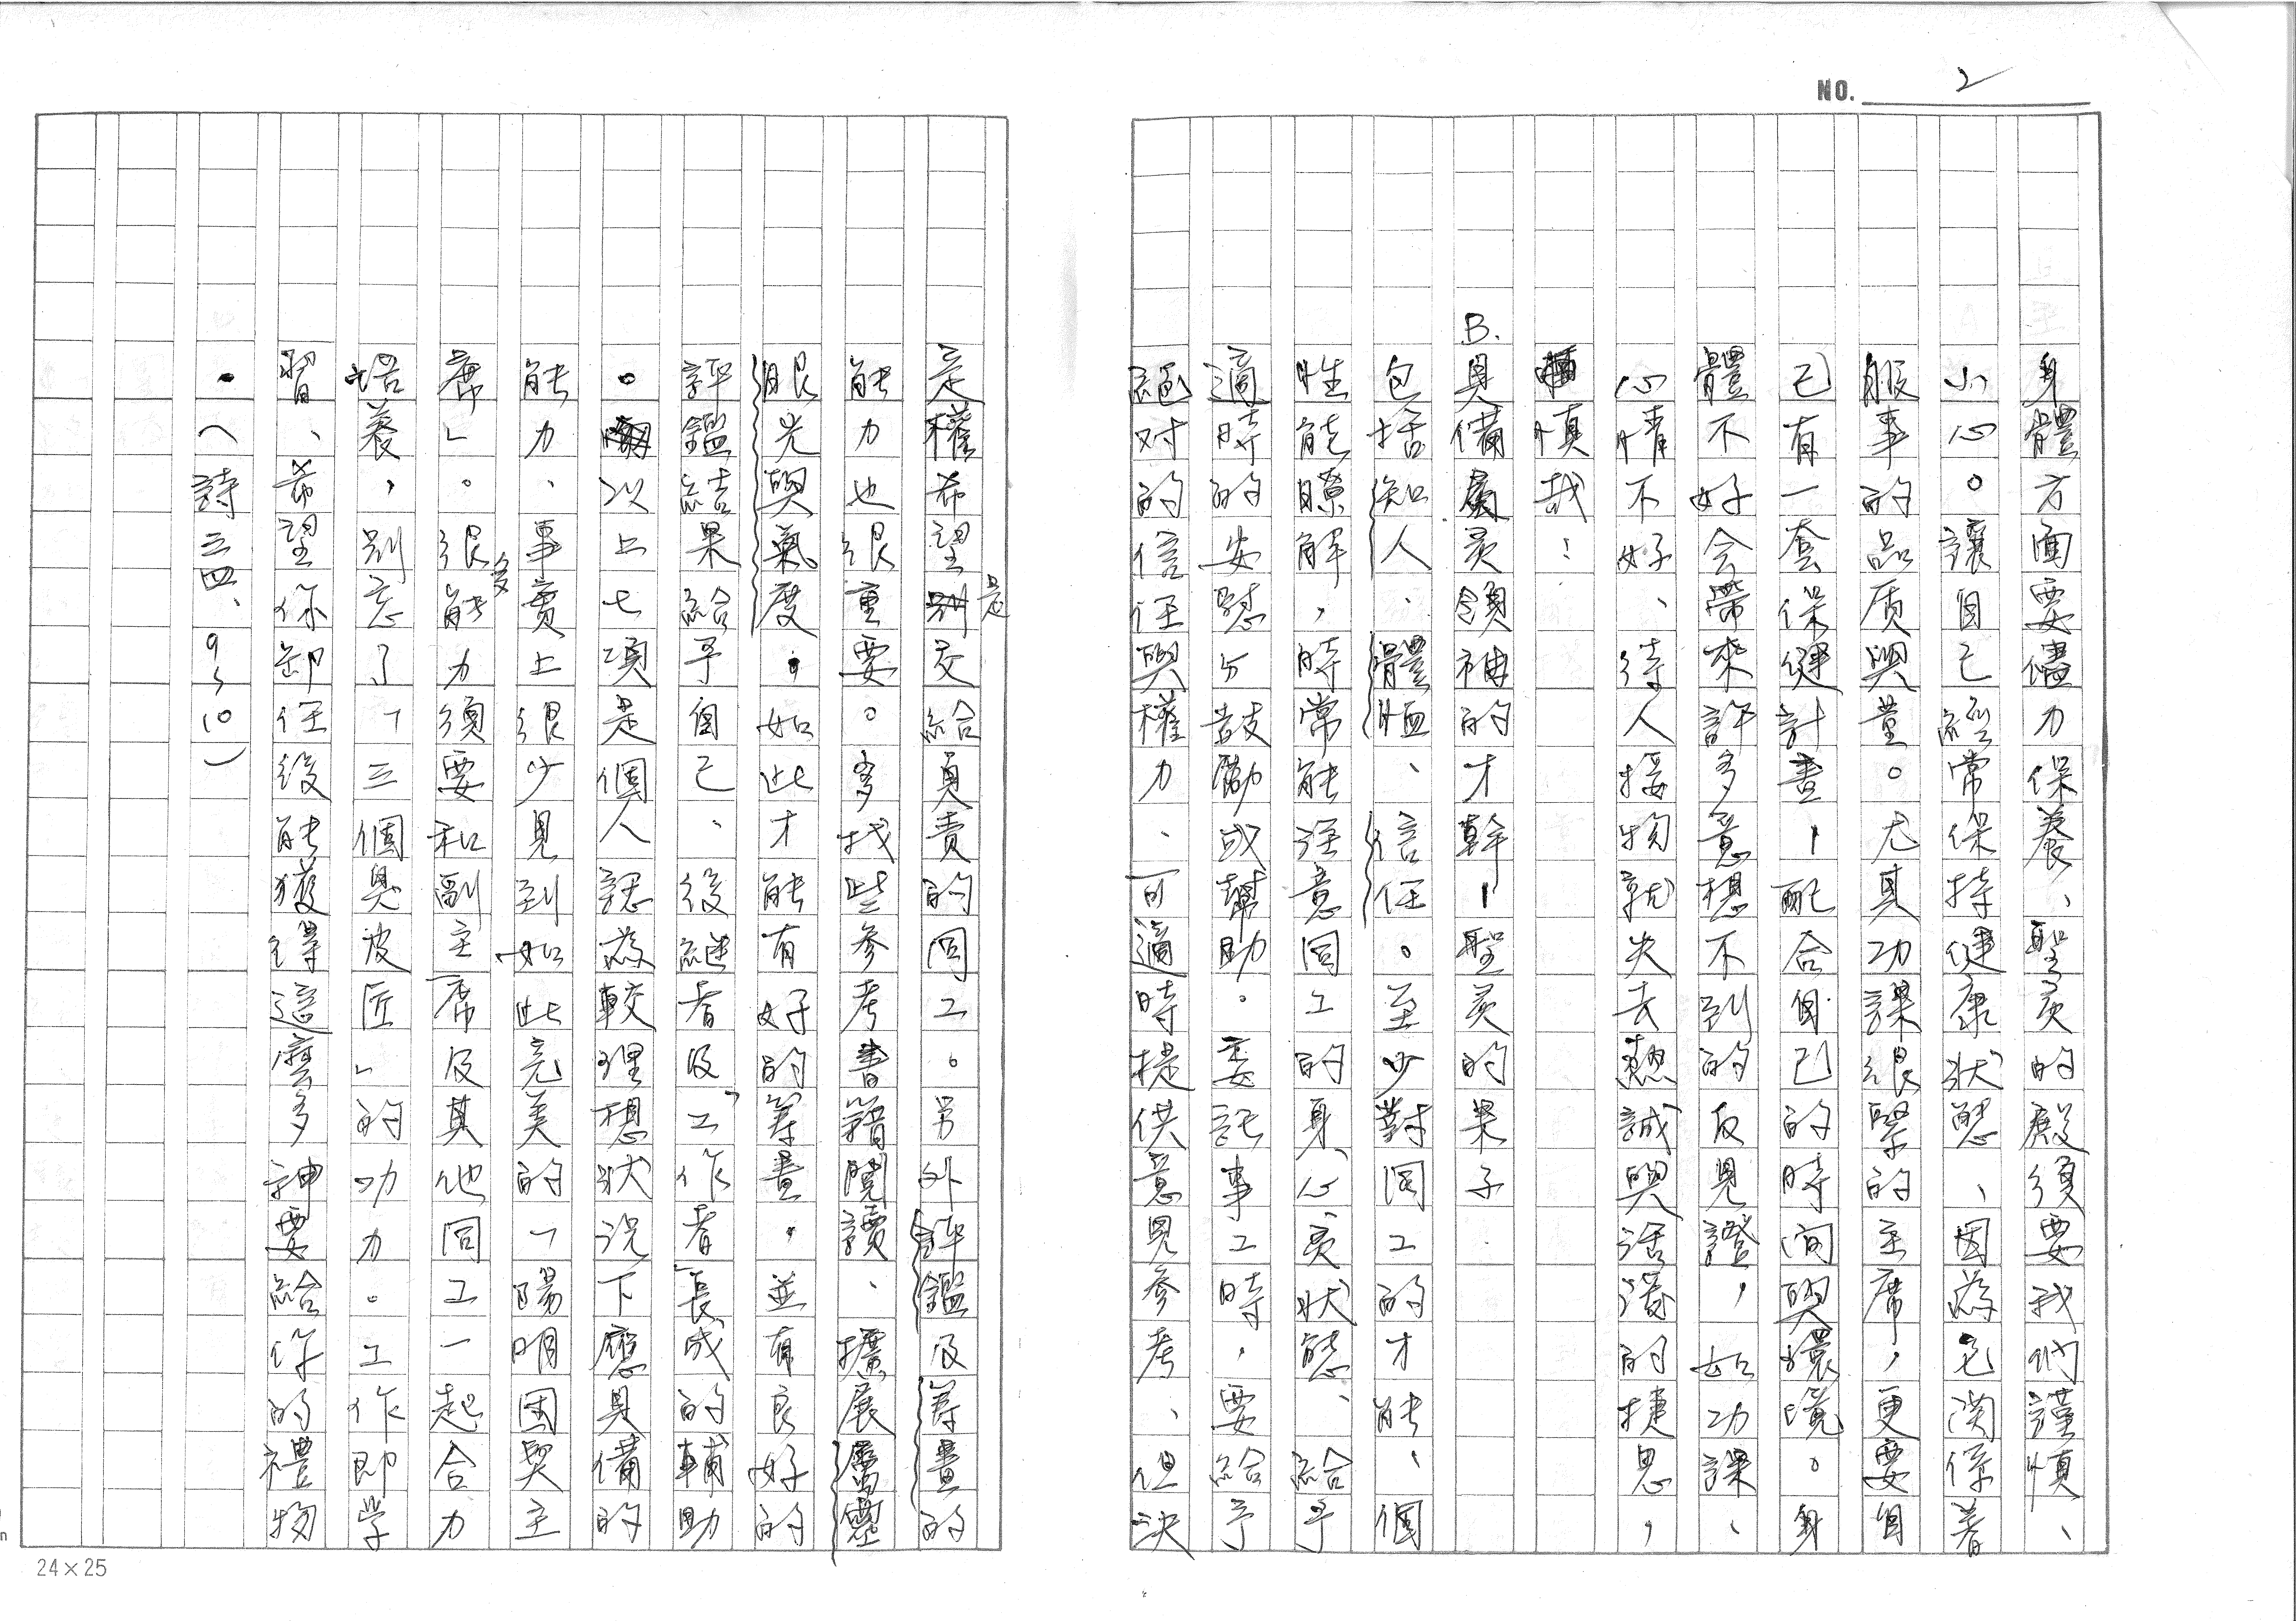 NO. 2
身體方面要儘力保養、聖灵的殿須要我們謹慎、
小心。讓自己經常保持健康狀態、因為它関係着
服事的品质與量。尤其功課很緊的主席，更要自
己有一套保健計畫－配合自己的時间與環境。身
體不好会帶來許多意想不到的反見證，如功課、
心情不好、待人接物就失去熱誠與活潑的捷思，
慎哉！
B.具備属灵領袖的才幹－聖灵的果子
包括知人、體恤、信任。至少對同工的才能、個
性能瞭解，時常能注意同工的身、心、灵狀態、給予
適時的安慰与鼓勵或幫助。委託事工時，要給予
絕对的信任與權力、可適時提供意見參考、但決
定權希望是交給負責的同工。另外評鑑及籌畫的
能力也很重要。多找些參考書籍閱讀、擴展屬靈
眼光與氣度，如此才能有好的籌畫，並有良好的
評鑑結果給予自己、後繼者及「工作者」長成的輔助
。以上七項是個人認為較理想狀況下應具備的
能力、事實上很少見到如此完美的「陽明团契主
席」。很多能力須要和副主席及其他同工一起合力
培養，别忘了「三個臭皮匠」的功力。工作即学
習、希望你卸任後能獲得這麼多神要給你的禮物
。（詩三四、9～10）
24×25